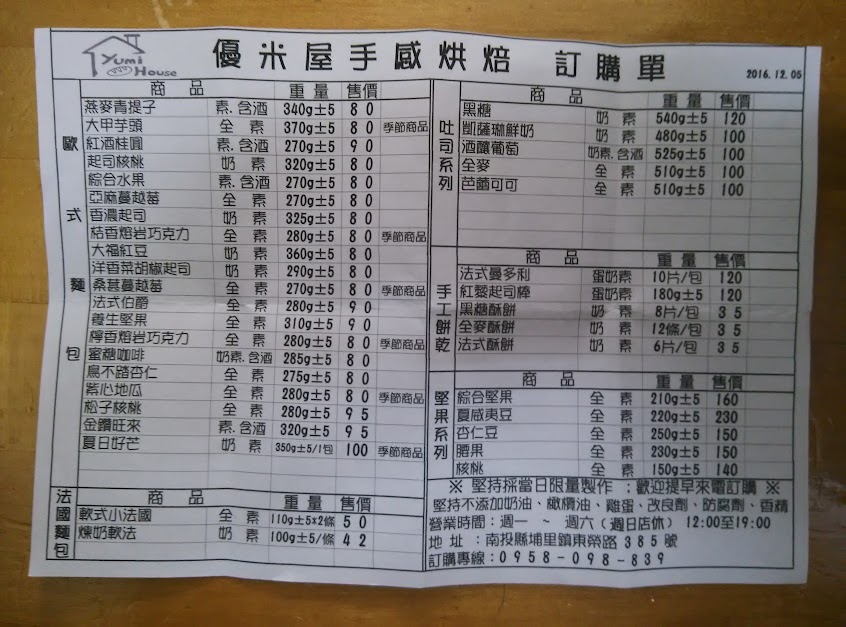 Yumi House
優米屋手感烘焙 訂購單
2016.12.05
歐式麵包
商品 重量 售價
燕麥青提子 素.含酒 340g±5 80
大甲芋頭 全素 370g±5 80 季節商品
紅酒桂圓 素.含酒 270g±5 90
起司核桃 奶素 320g±5 80
綜合水果 素.含酒 270g±5 80
亞麻蔓越莓 全素 270g±5 80
香濃起司 奶素 325g±5 80
桔香熔岩巧克力 全素 280g±5 80 季節商品
大福紅豆 奶素 360g±5 80
洋香菜胡椒起司 奶素 290g±5 80
桑甚蔓越莓 全素 270g±5 80 季節商品
法式伯爵 全素 280g±5 90
養生堅果 全素 310g±5 90
檸香熔岩巧克力 全素 280g±5 80 季節商品
蜜糖咖啡 奶素.含酒 285g±5 80
鳥不踏杏仁 全素 275g±5 80
紫心地瓜 全素 280g±5 80 季節商品
松子核桃 全素 280g±5 95
金鑽旺來 素.含酒 320g±5 95
夏日好芒 奶素 350g±5/1包 100 季節商品
法國麵包
商品 重量 售價
軟式小法國 全素 110g±5x2條 50
煉奶軟法 奶素 100g±5/條 42
吐司系列
商品 重量 售價
黑糖 奶素 540g±5 120
凱薩琳鮮奶 奶素 480g±5 100
酒釀葡萄 奶素.含酒 525g±5 100
全麥 全素 510g±5 100
芭蕾可可 全素 510g±5 100
手工餅乾
商品 重量 售價
法式曼多利 蛋奶素 10片/包 120
紅藜起司棒 蛋奶素 180g±5 120
黑糖酥餅 奶素 8片/包 35
全麥酥餅 奶素 12條/包 35
法式酥餅 奶素 6片/包 35
堅果系列
商品 重量 售價
綜合堅果 全素 210g±5 160
夏威夷豆 全素 220g±5 230
杏仁豆 全素 250g±5 150
腰果 全素 230g±5 150
核桃 全素 150g±5 140
※ 堅持採當日限量製作 ；歡迎提早來電訂購 ※
堅持不添加奶油、橄欖油、雞蛋、改良劑、防腐劑、香精
營業時間：週一 ~ 週六（週日店休）12:00至19:00
地 址：南投縣埔里鎮東榮路385號
訂購專線：0958-098-839